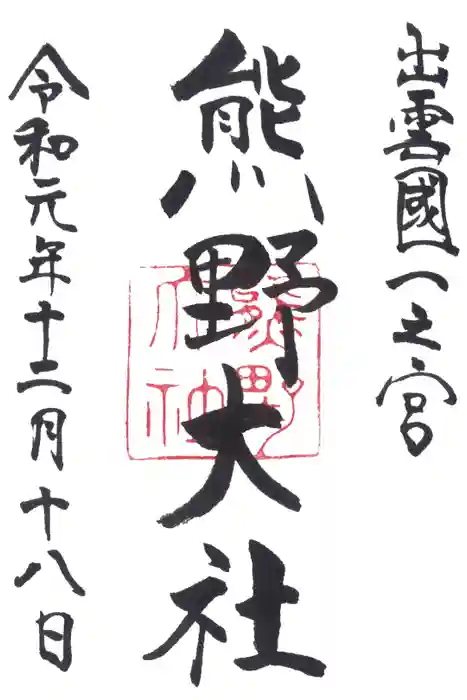 出雲國一之宮
熊野大社
熊野大社
令和元年十二月十八日